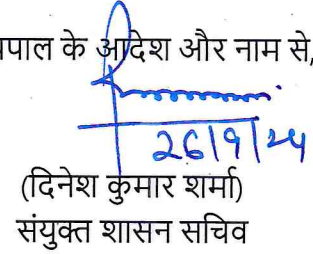 के आदेश और नाम से,
26/9/24
(दिनेश कुमार शर्मा)
संयुक्त शासन सचिव